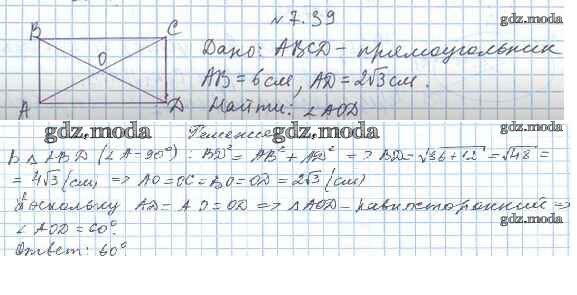 № 7.39
gdz.moda
B C
O
A D
Дано: ABCD – прямоугольник
AB = 6 см, AD = 2√3 см.
gdz.moda
Найти: ∠AOD
gdz.moda
gdz.moda Решение gdz.moda
В △ ABD (∠A = 90°): BD² = AB² + AD² => BD = √36+12 = √48 =
= 4√3 (см) => AO = OC = BO = OD = 2√3 (см)
Поскольку AD = AO = OD => △AOD – равносторонний =>
gdz.moda
∠AOD = 60°.
Ответ: 60°